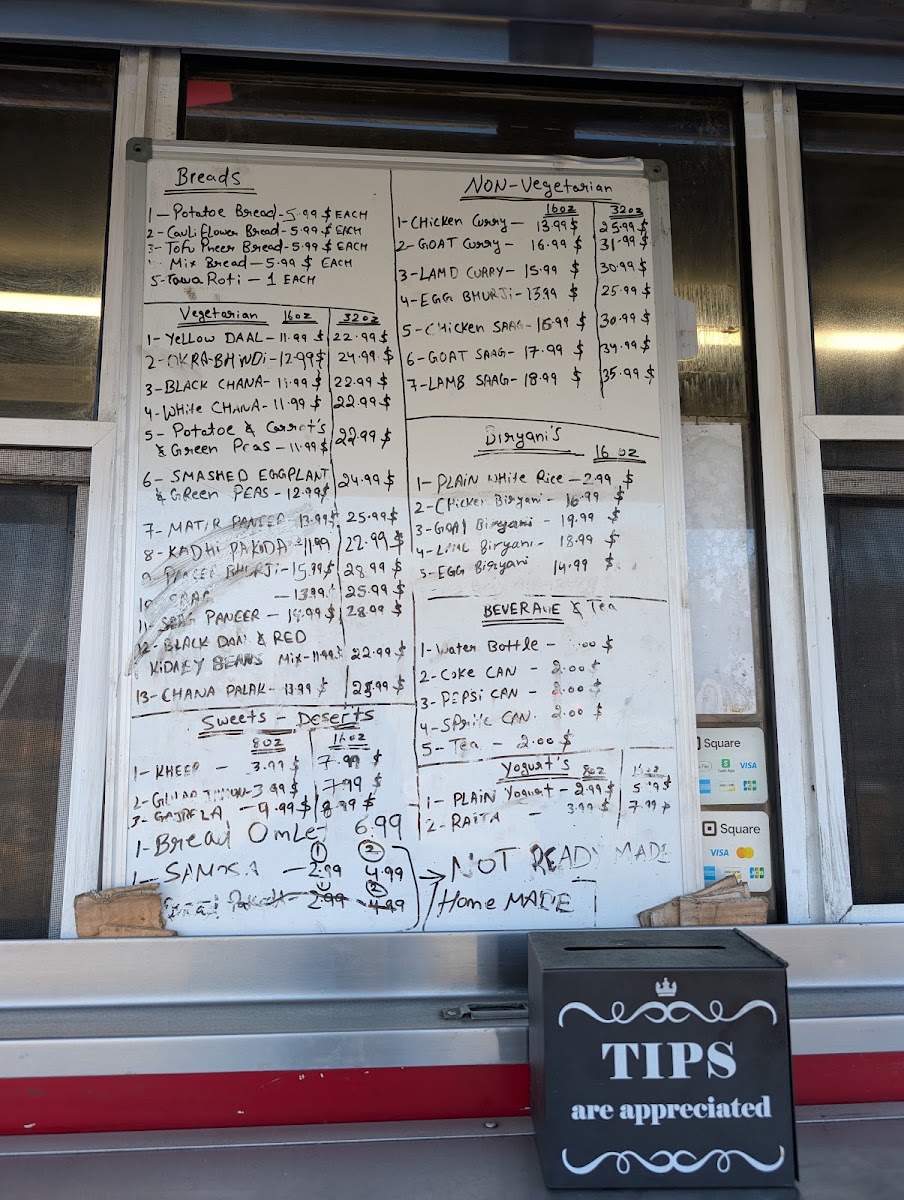 Breads
1- Potatoe Bread - 5.99 $ EACH
2- Cauliflower Bread - 5.99 $ EACH
3- Tofu Pneer Bread - 5.99 $ EACH
Mix Bread - 5.99 $ EACH
5- Tawa Roti - 1 EACH
Vegetarian 16oz 32oz
1- YELLOW DAAL - 11.99 $ 22.99 $
2- OKRA-BHINDI - 12.99 $ 24.99 $
3- BLACK CHANA - 11.99 $ 22.99 $
4- WHITE CHANA - 11.99 $ 22.99 $
5- Potatoe & Carrot's
& Green Peas - 11.99 $ 22.99 $
6- SMASHED EGGPLANT
& GReen PEAS - 12.99 $ 24.99 $
7- MATTR PANEER - 13.99 $ 25.99 $
8- KADHI PAKODA - 11.99 22.99 $
9- PANEER BHURJI - 15.99 $ 28.99 $
10- SAAG - 13.99 25.99 $
11- SAAG PANEER - 14.99 $ 28.99 $
12- BLACK DAAL & RED
KIDNEY BEANS MIX - 11.99 $ 22.99 $
13- CHANA PALAK - 13.99 $ 25.99 $
Sweets - Deserts
8oz 16oz
1- KHEER - 3.99 $ 7.99 $
2- 3.99 $ 7.99 $
3- GAJRELA - 4.99 $ 8.99 $
1- Bread Omlet 6.99
① ②
1- SAMOSA - 2.99 4.99
Bread Pakoda - 2.99 4.99
NON-Vegetarian
16oz 32oz
1- CHicken Curry - 13.99 $ 25.99 $
2- GOAT Curry - 16.99 $ 31.99 $
3- LAMD CURRY - 15.99 $ 30.99 $
4- EGG BHURJI - 13.99 $ 25.99 $
5- CHicken SAAG - 16.99 $ 30.99 $
6- GOAT SAAG - 17.99 $ 34.99 $
7- LAMB SAAG - 18.99 $ 35.99 $
Biryani's
16 oz
1- PLAIN White Rice - 2.99 $
2- Chicken Biryani - 16.99 $
3- GOAT Biryani - 19.99 $
4- Biryani - 18.99 $
5- EGG Biryani 14.99 $
BEVERAGE & Tea
1- Water Bottle - .00 $
2- Coke CAN - 2.00 $
3- PEPSI CAN - 2.00 $
4- SPrite CAN. 2.00 $
5- Tea - 2.00 $
Yogurt's 8oz 16oz
1- PLAIN Yogurt - 2.99 $ 5.99 $
2- RAITA - 3.99 $ 7.99 $
NOT READY MADE
Home MADE
Square
Pay Cash App VISA
JCB
Square
VISA
JCB
TIPS
are appreciated